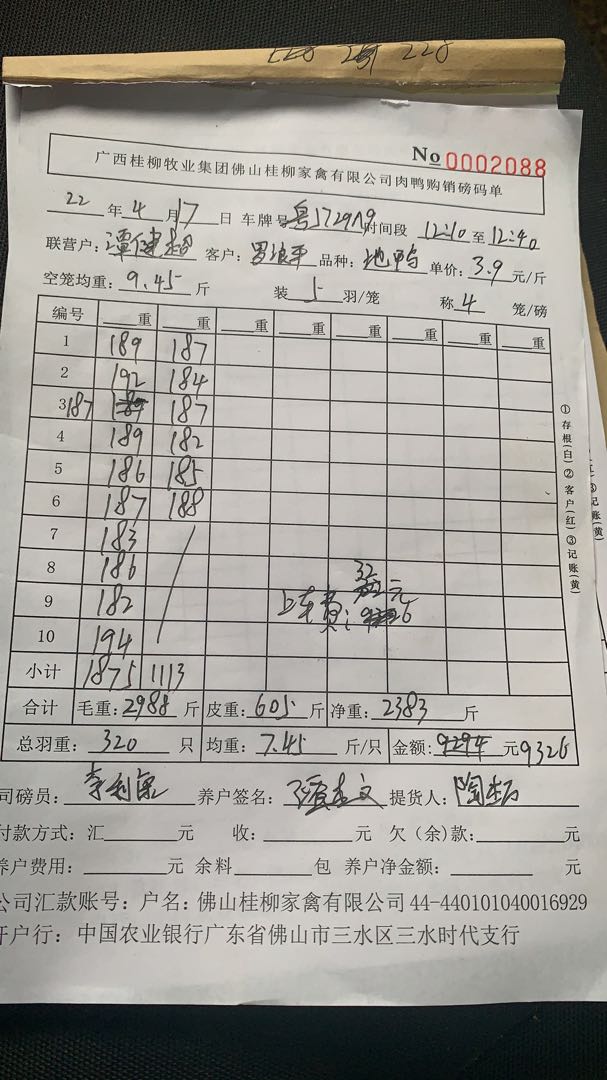 No 0002088
广西桂柳牧业集团佛山桂柳家禽有限公司肉鸭购销磅码单
22 年 4 月 17 日 车牌号 粤J729A9 时间段 12:10 至 12:40
联营户: 谭健超 客户: 罗浪平 品种: 地鸭 单价: 3.9 元/斤
空笼均重: 9.45 斤 装 5 羽/笼 称 4 笼/磅
编号 重 重 重 重 重 重 重 重
1 189 187
2 192 184
3 187 187
4 189 182
5 186 185
6 187 188
7 183
8 186 32元
9 182 上车费: 9326
10 194
小计 1875 1113
合计 毛重: 2988 斤 皮重: 605 斤 净重: 2383 斤
总羽重: 320 只 均重: 7.45 斤/只 金额: 9294 元 9326
司磅员: 养户签名: 提货人:
付款方式: 汇 元 收: 元 欠(余)款: 元
养户费用: 元 余料 包 养户净金额: 元
公司汇款账号: 户名: 佛山桂柳家禽有限公司 44-440101040016929
开户行: 中国农业银行广东省佛山市三水区三水时代支行
①存根(白)②客户(红)③记账(黄)
③记账(黄)